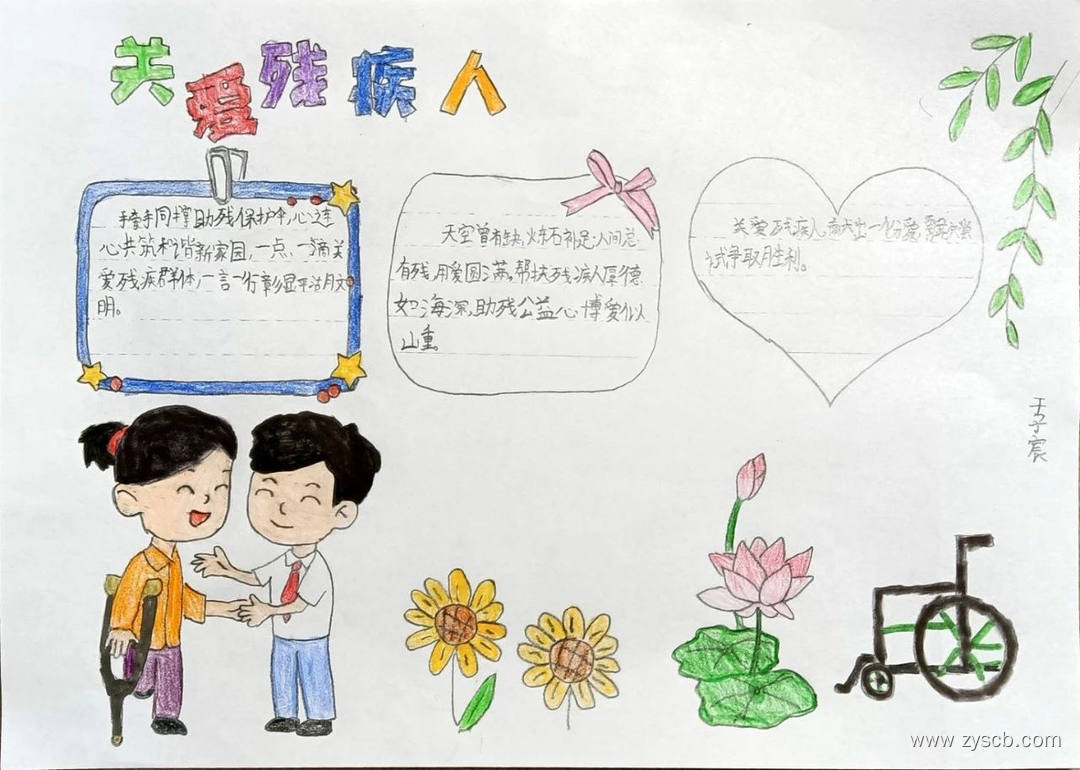 关爱残疾人
携手同撑助残保护伞,心连
心共筑和谐新家园,一点一滴关
爱残疾群体,一言一行彰显平治月文
明。
天空曾有缺,炼石补足,人间总
有残,用爱圆满,帮扶残疾人厚德
如海深,助残公益心博爱似
山重。
关爱残疾人,献出一份爱,
试争取月生利。
王子宸
www zyscb.com